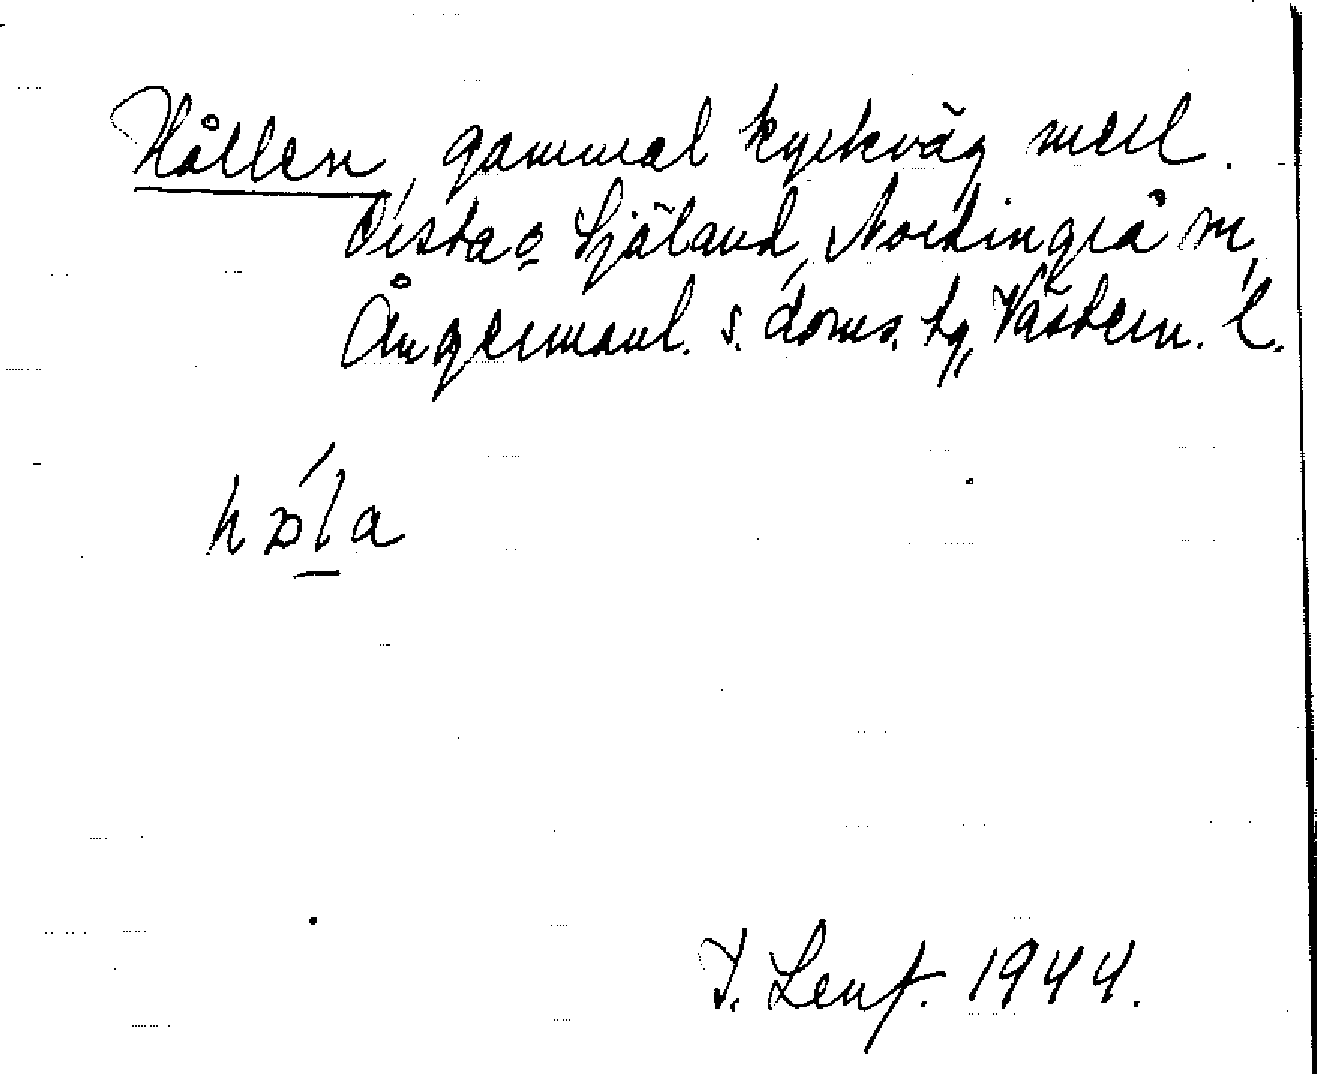 Hållen, gammal kyrkväg mell.
Örsta o Själand, Nordingrå sn,
Ångermanl. s. doms. tg, Västern. l.
hɔĺa
I. Lenf. 1944.